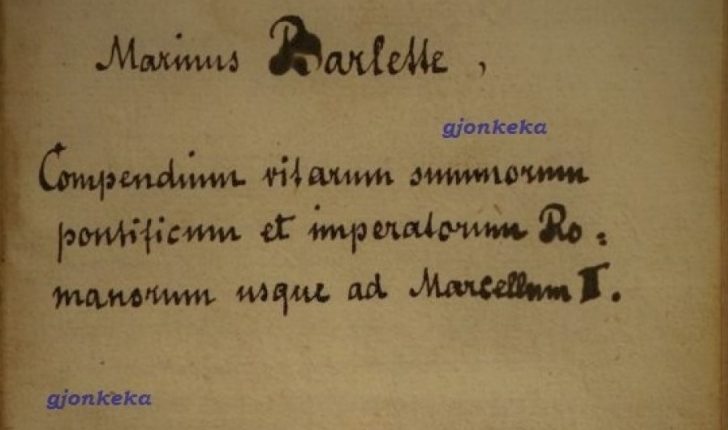 Marinus Barlette,
gjonkeka
Compendium vitarum summorum
pontificum et imperatorum Ro:
manorum usque ad Marcellum II.
gjonkeka